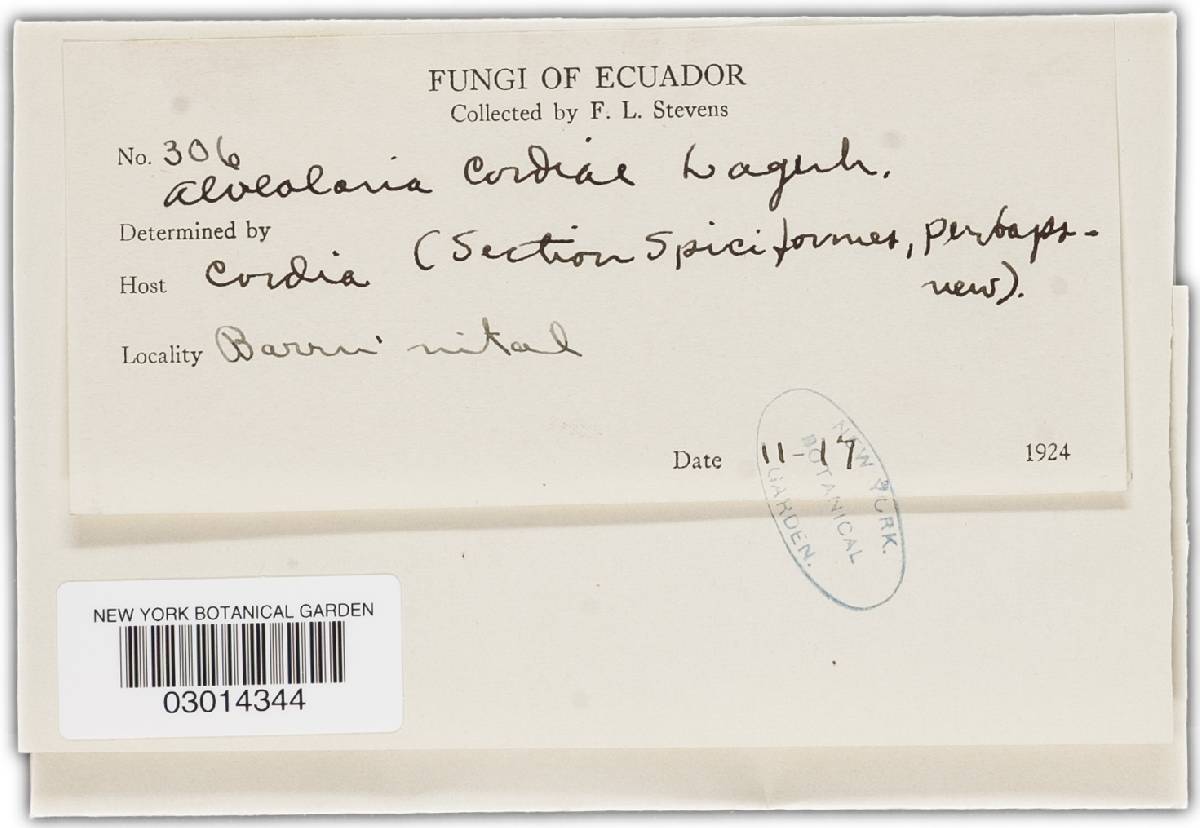 FUNGI OF ECUADOR
Collected by F. L. Stevens
No. 306
Alveolaria Cordiae Lagerh.
Determined by
Host Cordia (Section Spiciformes, perhaps
new).
Locality
Date 11-17 1924
NEW YORK
BOTANICAL
GARDEN.
NEW YORK BOTANICAL GARDEN
03014344